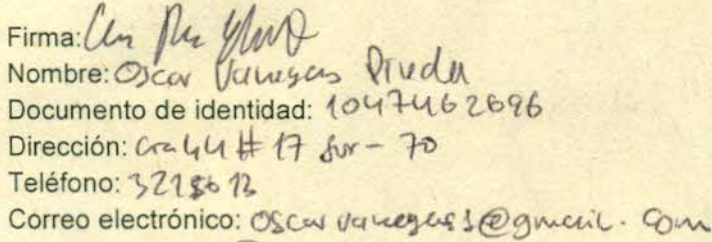 Firma:
Nombre: Oscar Vanegas Pineda
Documento de identidad: 1047462696
Dirección: Cra 44 # 17 sur - 70
Teléfono:
Correo electrónico: oscarvanegas1@gmail.com